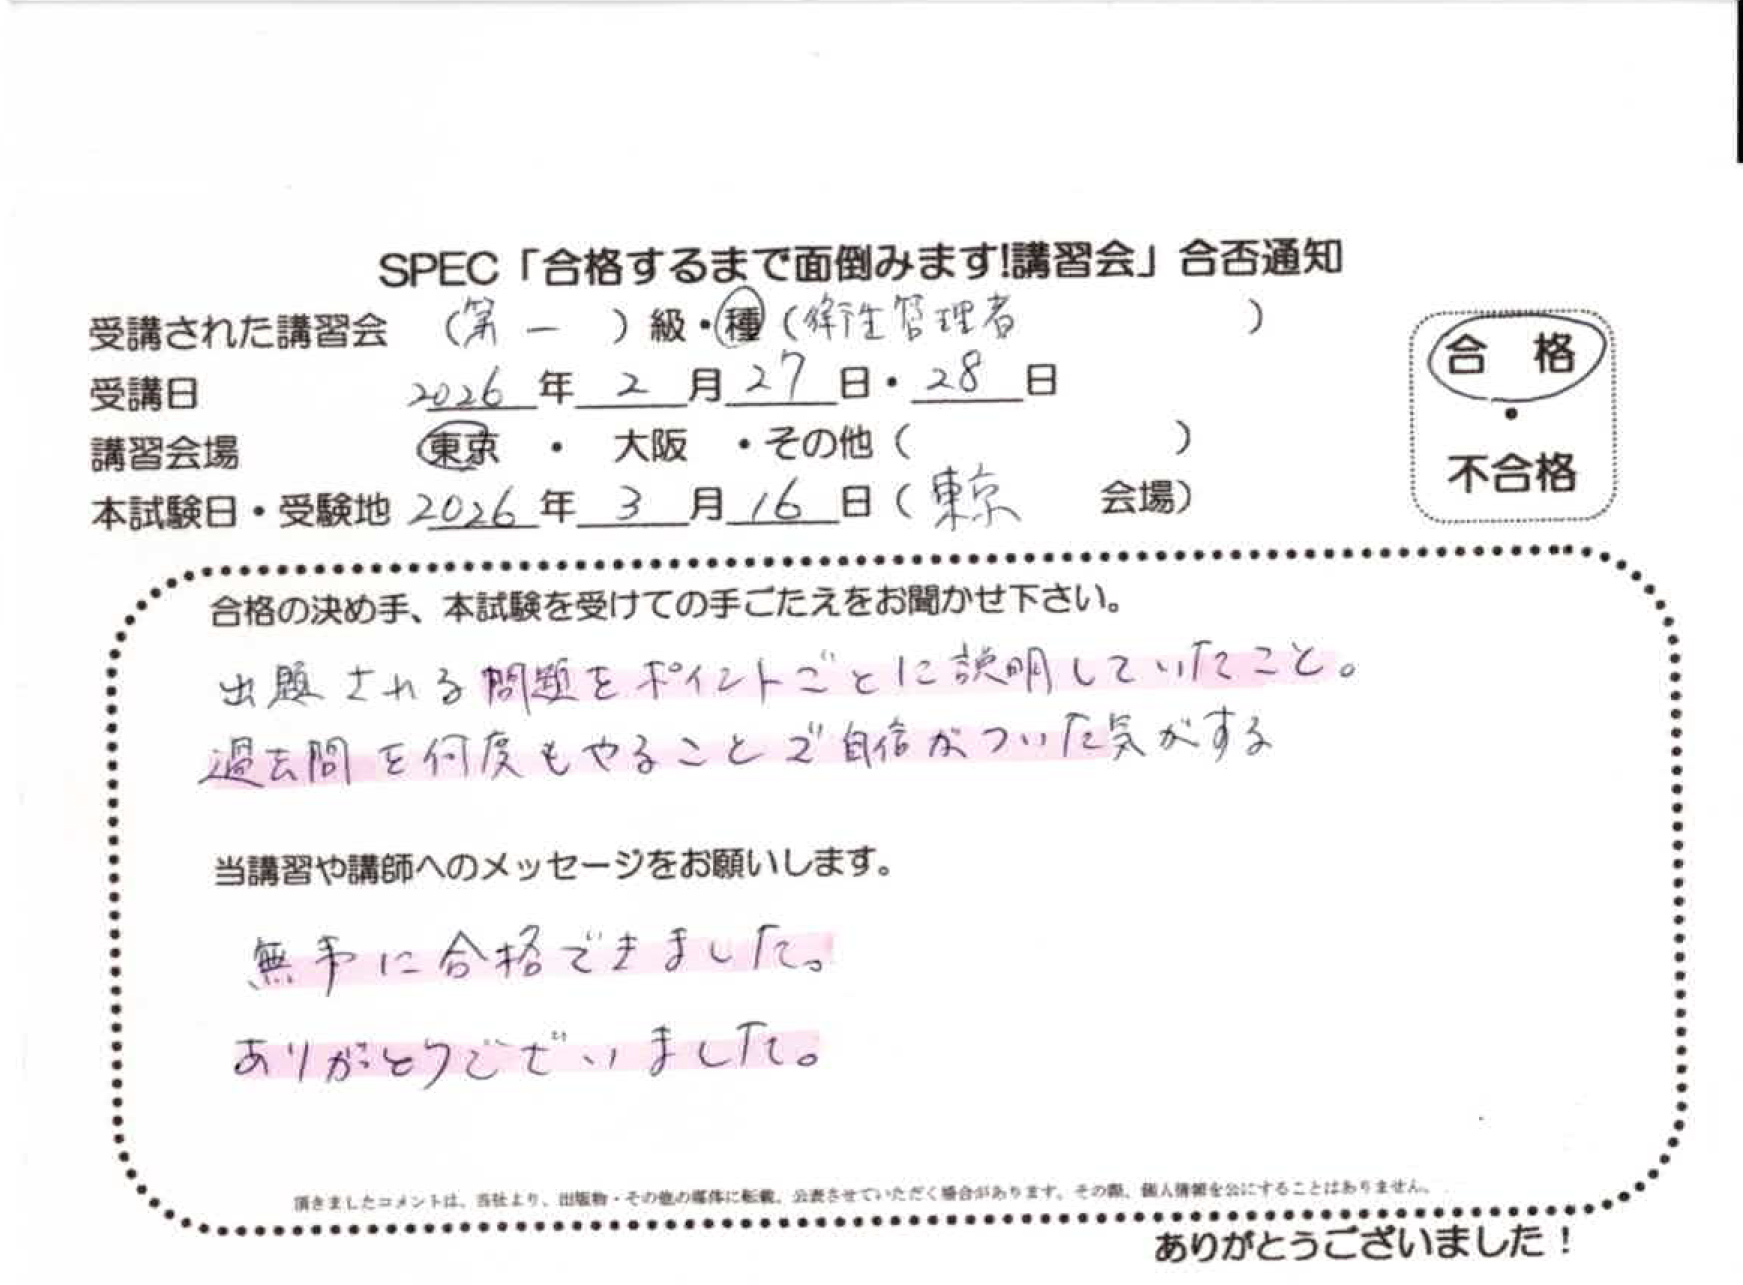 SPEC「合格するまで面倒みます!講習会」合否通知
受講された講習会 (第一)級・種(衛生管理者)
合格
・
不合格
受講日 2026年2月27日・28日
講習会場 東京・大阪・その他()
本試験日・受験地 2026年3月16日(東京会場)
合格の決め手、本試験を受けての手ごたえをお聞かせ下さい。
出題される問題をポイントごとに説明していたこと。
過去問を何度もやることで自信がついた気がする
当講習や講師へのメッセージをお願いします。
無事に合格できました。
ありがとうございました。
頂きましたコメントは、当社より、出版物・その他の媒体に転載、公表させていただく場合があります。その際、個人情報を公にすることはありません。
ありがとうございました!